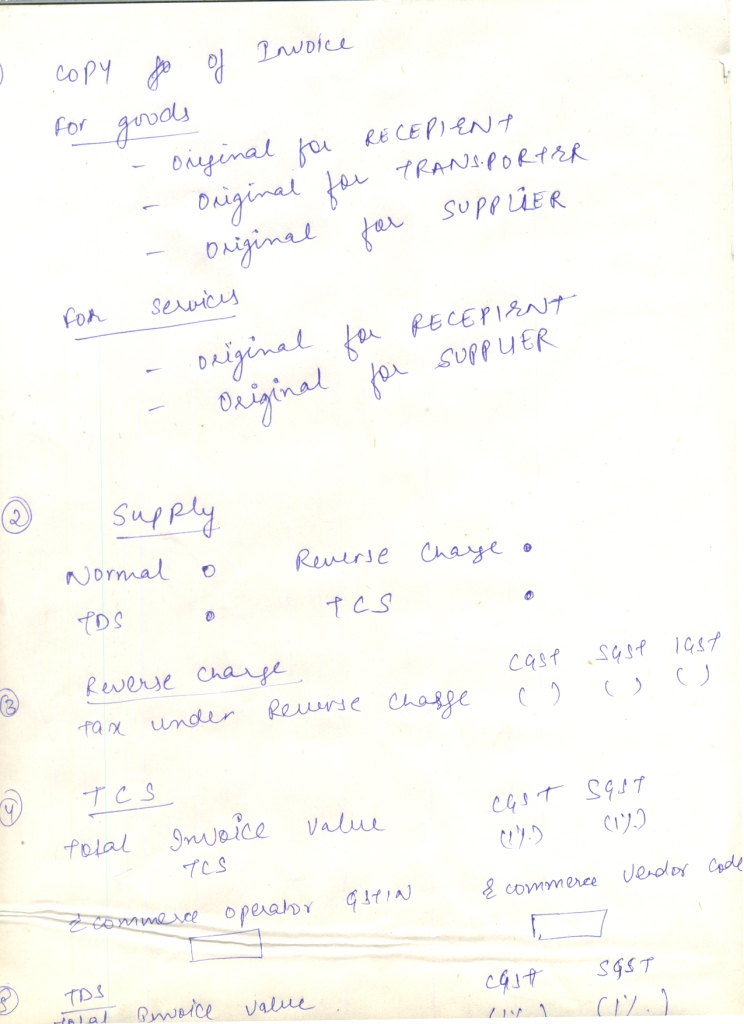 ) COPY of Invoice
For goods
- Original for RECEPIENT
- Original for TRANSPORTER
- Original for SUPPLIER
For services
- Original for RECEPIENT
- Original for SUPPLIER
② Supply
Normal o Reverse Charge •
TDS o TCS •
Reverse charge CGST SGST IGST
③ Tax under Reverse charge ( ) ( ) ( )
④ TCS CGST SGST
Total Invoice value (1%) (1%)
TCS
E commerce operator GSTIN E commerce Vendor Code
TDS CGST SGST
Total Invoice value (1%) (1%)